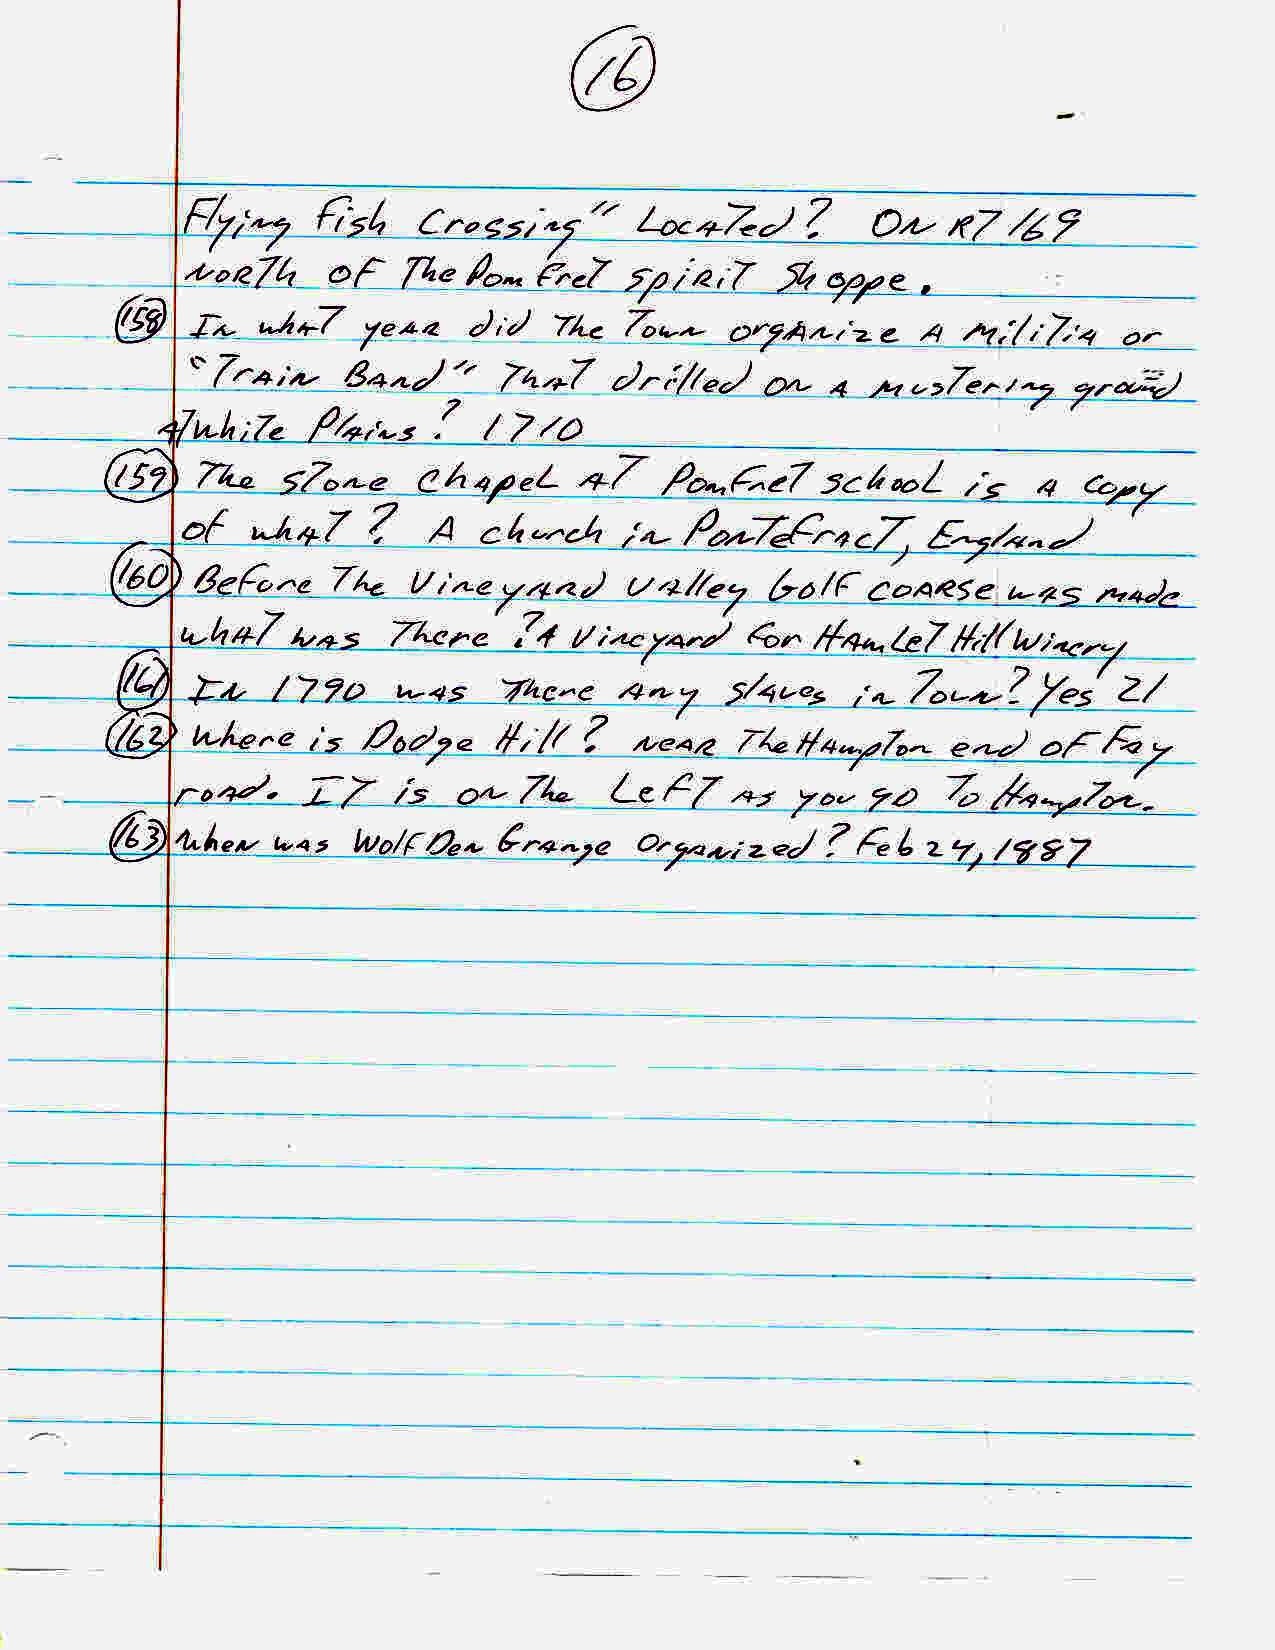 16
Flying Fish Crossing" Located? ON RT 169
North of The Pomfret Spirit Shoppe.
158 In what year did The Town organize A Militia or
"Train Band" That drilled on a mustering ground
AT White Plains? 1710
159 The stone chapel AT Pomfret school is a copy
of what? A church in Pontefract, England
160 Before The Vineyard Valley Golf coarse was made
what was There? A Vineyard for Hamlet Hill Winery
161 In 1790 was There any slaves in Town? Yes 21
162 Where is Dodge Hill? Near The Hampton end of Fay
road. IT is on The Left as you go To Hampton.
163 When was Wolf Den Grange Organized? Feb 24, 1887